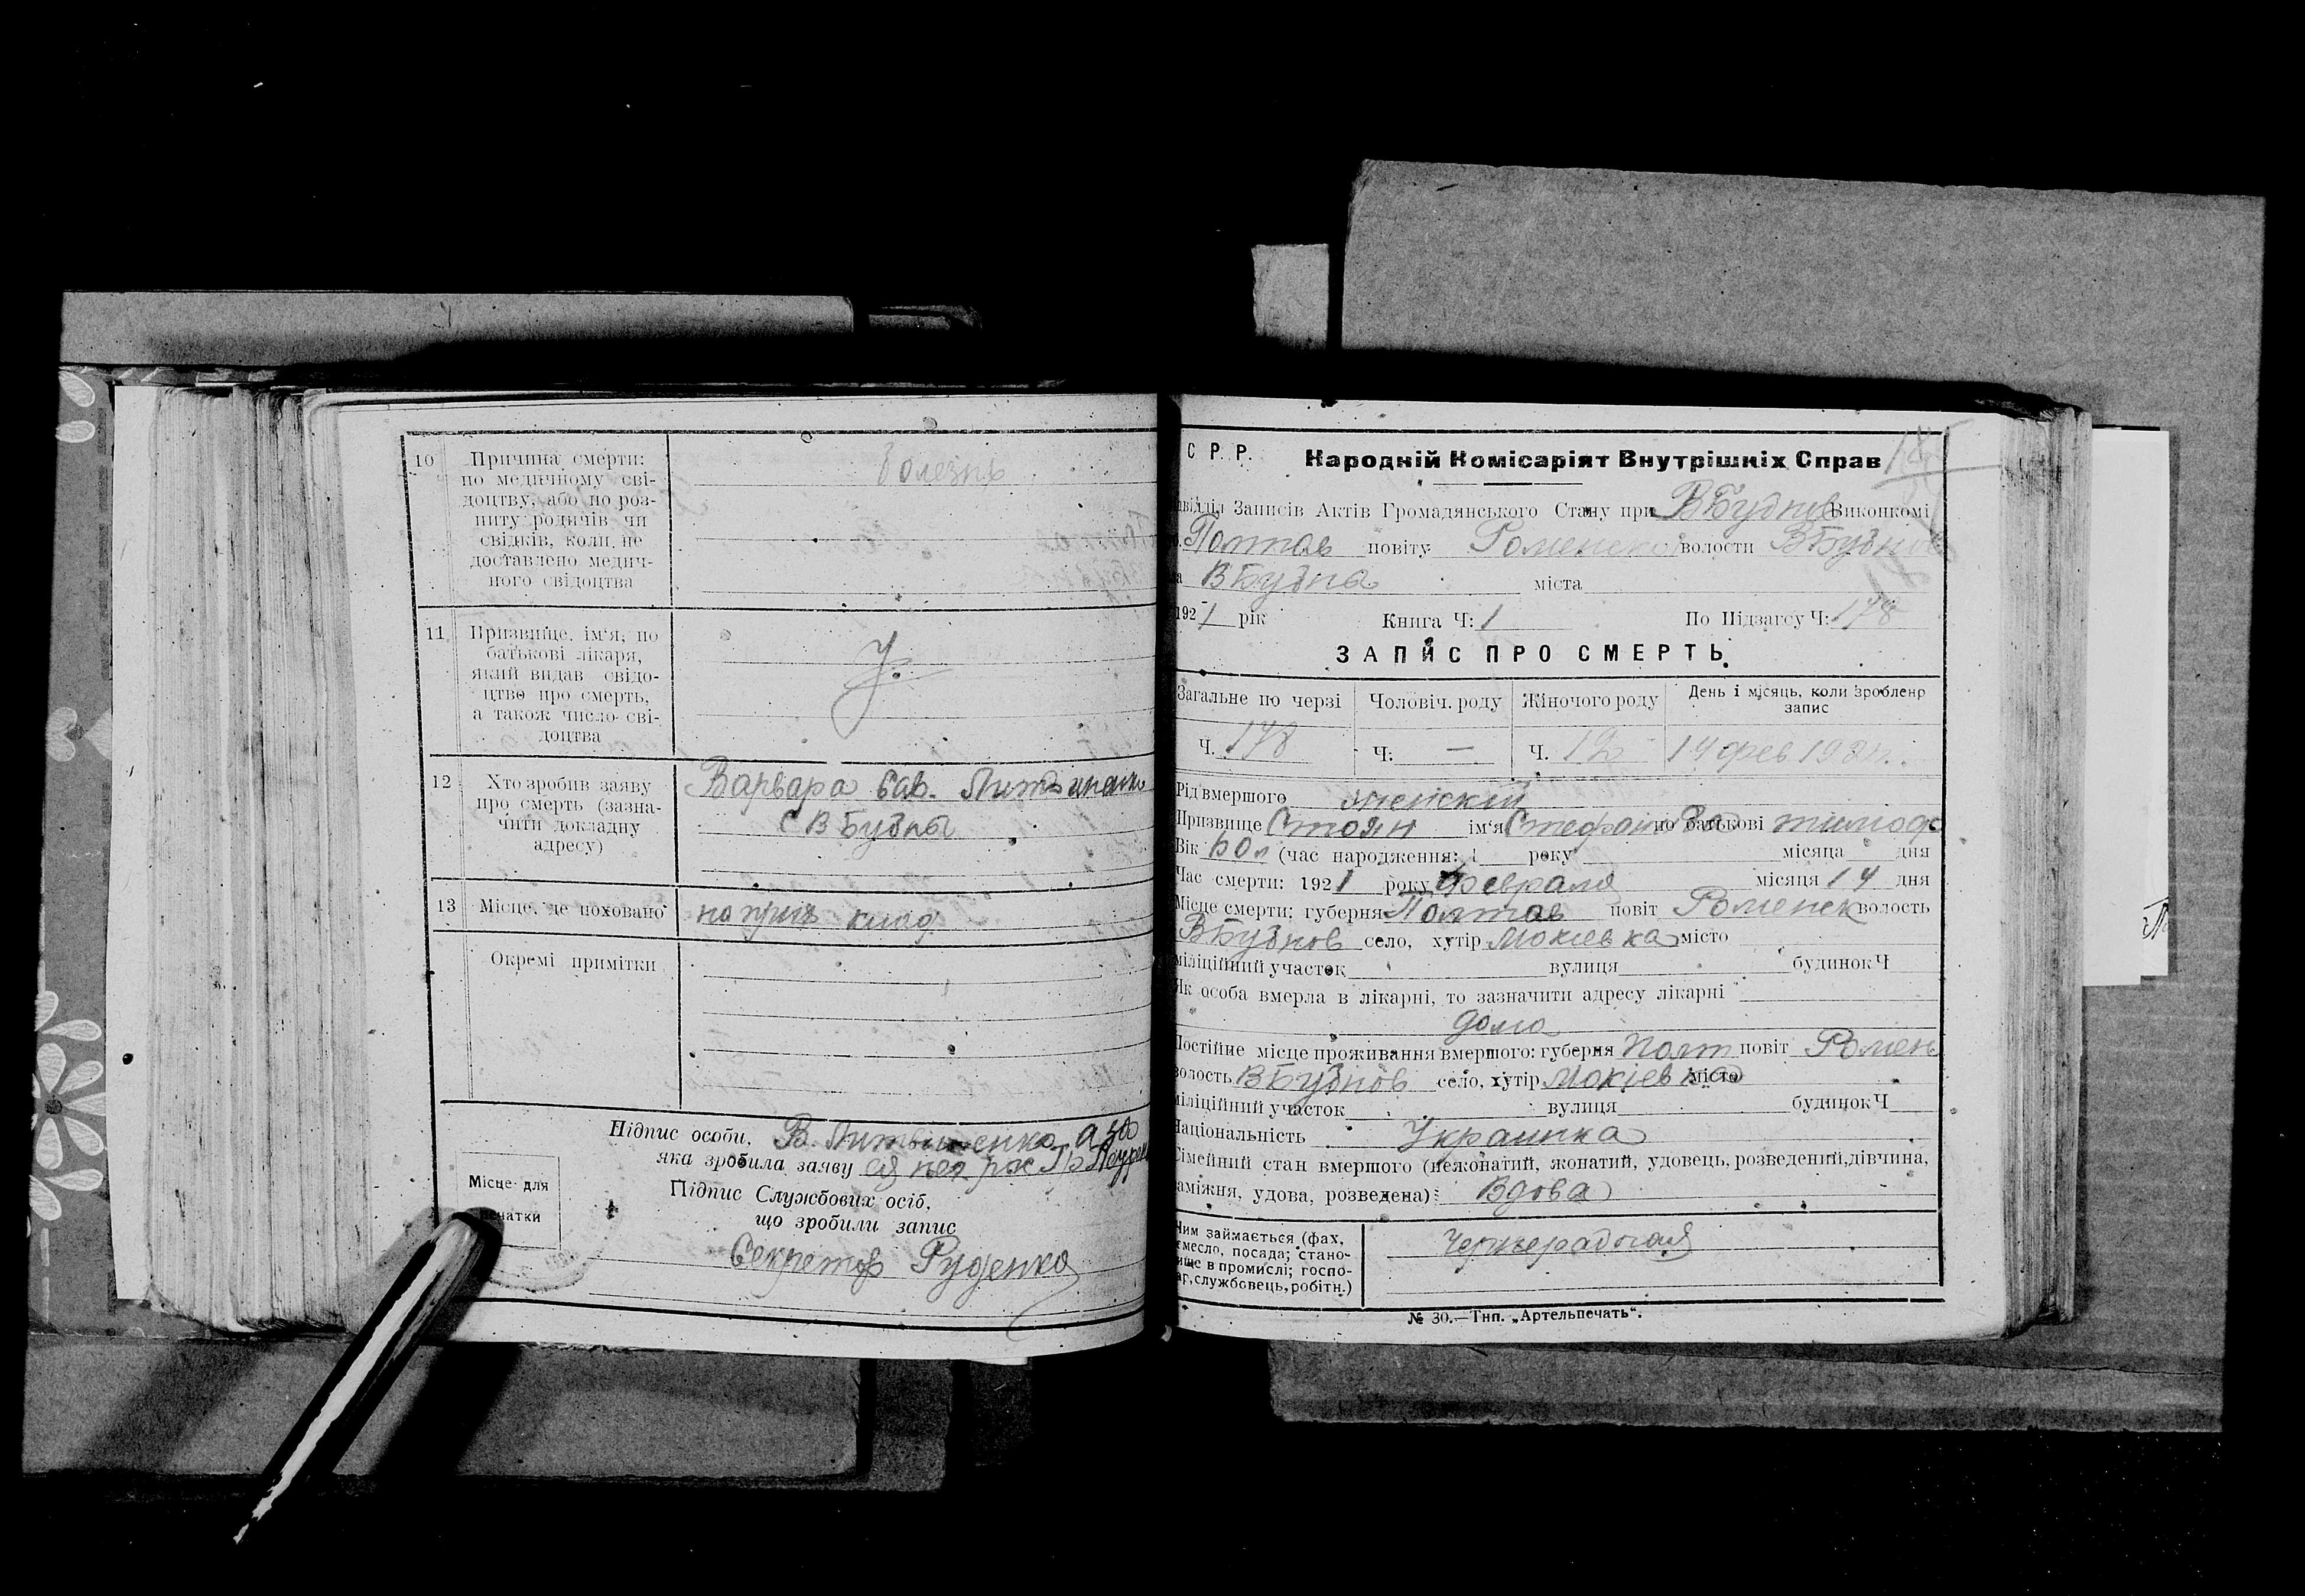 10 Причина смерти:
по медичному сві-
доцтву, або по роз-
питу родичів чи
свідків, коли не
доставлено медич-
ного свідоцтва
болезнь
11 Призвище, ім'я, по
батькові лікаря,
який видав свідо-
цтво про смерть,
а також число сві-
доцтва
12 Хто зробив заяву
про смерть (зазна-
чити докладну
адресу)
Варвара Сав.
С В Бубны
13 Місце, де поховано
на кладб
Окремі примітки
Підпис особи, В. Литвиненко а за
яка зробила заяву
Підпис Службових осіб,
що зробили запис
Місце для
чатки
Секретар Руденко
С. Р. Р. Народній Комісаріят Внутрішніх Справ
відділ Записів Актів Громадянського Стану при ВБубнов Виконкомі
Полтав повіту Роменско волости ВБубнов
ВБубна міста
1921 рік Книга Ч: 1 По Підзагсу Ч: 178
ЗАПИС ПРО СМЕРТЬ
Загальне по черзі Чоловіч. роду Жіночого роду День і місяць, коли зроблено
запис
Ч. 178 Ч: — Ч. 14 фев 1921
Рід вмершого женский
Призвище Стоян ім'я по батькові тимоф
Вік 60 л (час народження: року місяця дня
Час смерти: 1921 року Февраля місяця 14 дня
Місце смерти: губерня Полтав повіт Роменск волость
ВБубнов село, хутір Мокіевка місто
міліційний участок вулиця будинок Ч
Як особа вмерла в лікарні, то зазначити адресу лікарні
дома
Постійне місце проживання вмершого: губерня Полт повіт Ромен
волость ВБубнов село, хутір Мокіевка місто
міліційний участок вулиця будинок Ч
Національність Украинка
Сімейний стан вмершого (нежонатий, жонатий, удовець, розведений, дівчина,
аміжня, удова, розведена): Вдова
Чим займається (фах,
емесло, посада; стано-
ище в промислі; госпо-
ар, службовець, робітн.)
Чернерабочая
№ 30.—Тип. „Артельпечать“.